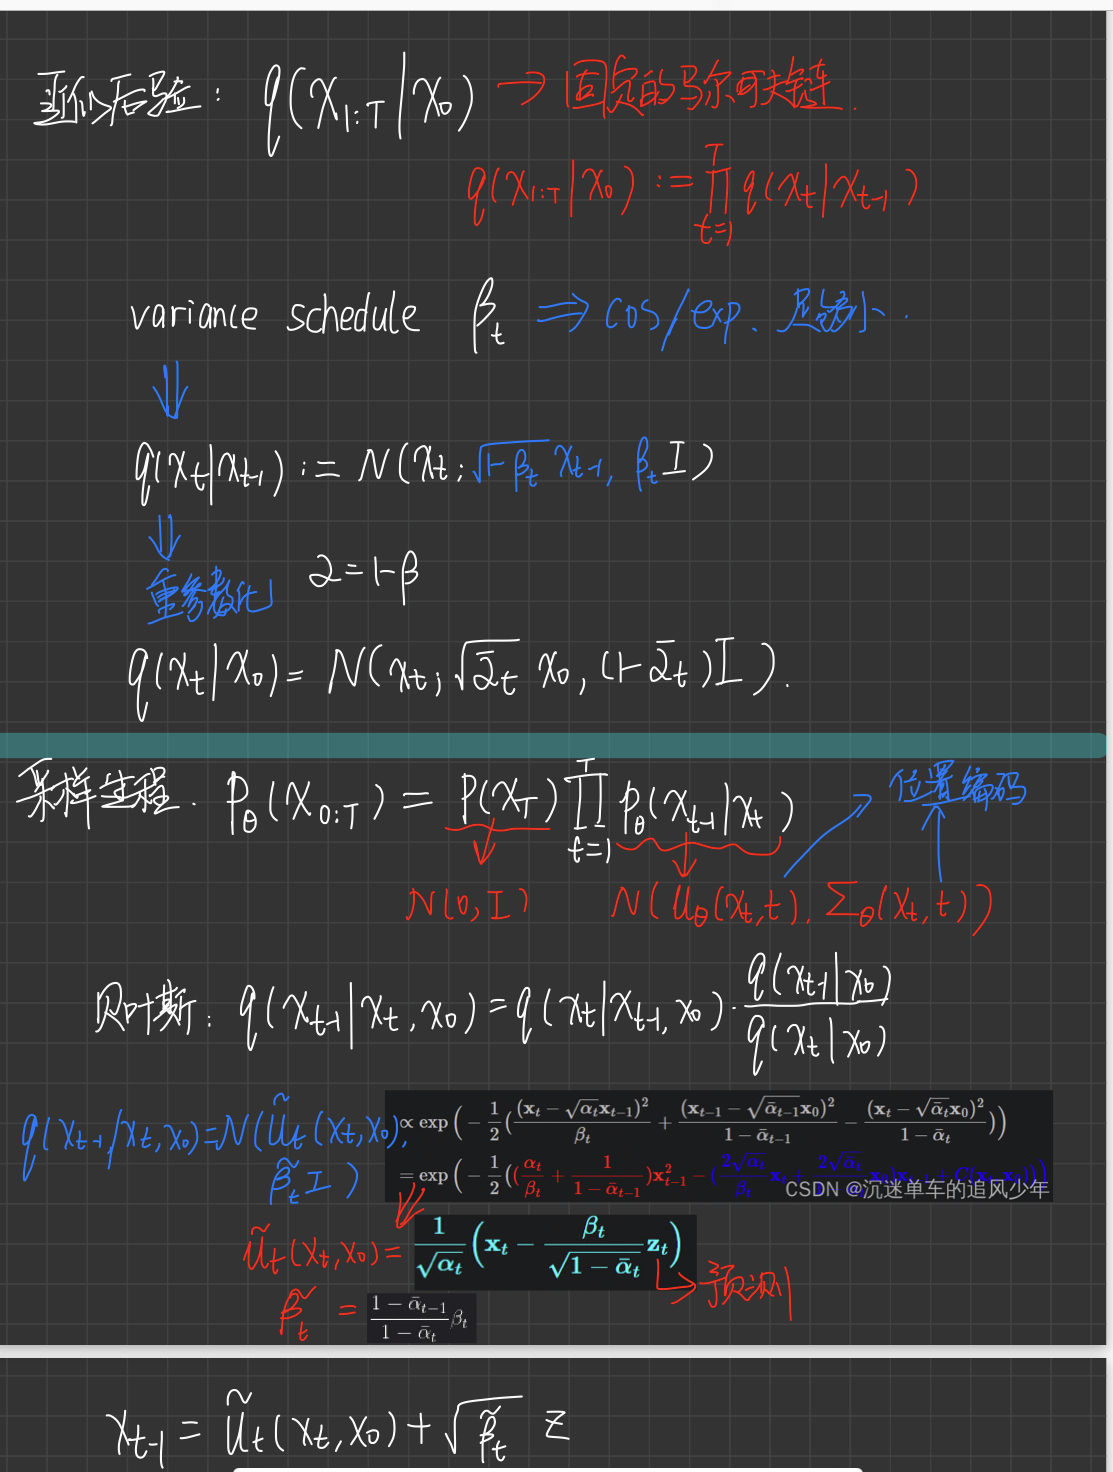 近似后验: q(x_{1:T}|x_0) → 固定的马尔可夫链.
q(x_{1:T}|x_0) := ∏_{t=1}^{T} q(x_t|x_{t-1})
variance schedule β_t ⇒ cos/exp、足够小.
⇓
q(x_t|x_{t-1}) := N(x_t; √(1-β_t) x_{t-1}, β_t I)
⇓
重参数化 α=1-β
q(x_t|x_0) = N(x_t; √ᾱ_t x_0, (1-ᾱ_t)I).
采样生程. p_θ(x_{0:T}) = p(x_T) ∏_{t=1}^{T} p_θ(x_{t-1}|x_t) 位置编码
N(0,I) N(u_θ(x_t,t), Σ_θ(x_t,t))
贝叶斯: q(x_{t-1}|x_t,x_0) = q(x_t|x_{t-1},x_0)·q(x_{t-1}|x_0)/q(x_t|x_0)
q(x_{t-1}|x_t,x_0)=N(ũ_t(x_t,x_0), β̃_t I)
∝ exp(-1/2((x_t-√α_t x_{t-1})²/β_t + (x_{t-1}-√ᾱ_{t-1} x_0)²/(1-ᾱ_{t-1}) - (x_t-√ᾱ_t x_0)²/(1-ᾱ_t)))
= exp(-1/2((α_t/β_t + 1/(1-ᾱ_{t-1}))x²_{t-1} - (2√α_t/β_t x_t +
CSDN @沉迷单车的追风少年
ũ_t(x_t,x_0) = 1/√α_t (x_t - β_t/√(1-ᾱ_t) z_t) → 预测
β̃_t = (1-ᾱ_{t-1})/(1-ᾱ_t) β_t
x_{t-1} = ũ_t(x_t,x_0) + √β̃_t z